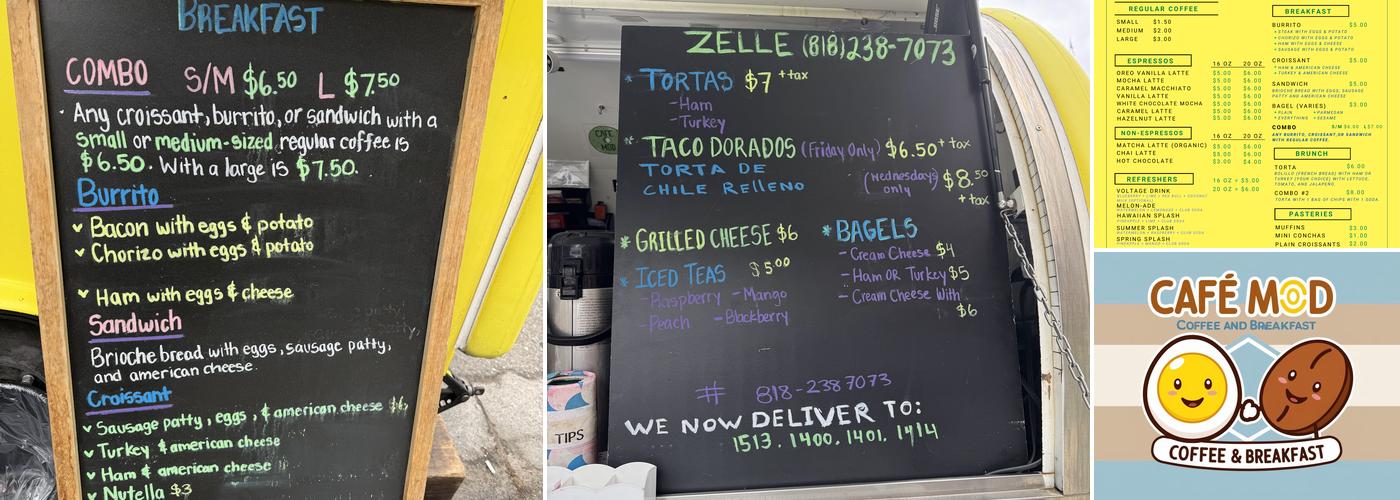 BREAKFAST
COMBO S/M $6.50 L $7.50
Any croissant, burrito, or sandwich with a
small or medium-sized regular coffee is
$6.50. With a large is $7.50.
Burrito
Bacon with eggs & potato
Chorizo with eggs & potato
Ham with eggs & cheese
Sandwich
Brioche bread with eggs, sausage patty,
and american cheese.
Croissant
Sausage patty, eggs, & american cheese $6
Turkey & american cheese
Ham & american cheese
Nutella $3
ZELLE (818)238-7073
* TORTAS $7 +tax
-Ham
-Turkey
* TACO DORADOS (Friday Only) $6.50 + tax
TORTA DE
CHILE RELLENO (Wednesdays only) $8.50 + tax
* GRILLED CHEESE $6
* ICED TEAS $5.00
-Raspberry -Mango
-Peach -Blackberry
* BAGELS
-Cream Cheese $4
-Ham OR Turkey $5
-Cream Cheese With
$6
# 818-238 7073
WE NOW DELIVER TO:
1513, 1400, 1401, 1414
CAFE MOD
TIPS
REGULAR COFFEE
SMALL $1.50
MEDIUM $2.00
LARGE $3.00
ESPRESSOS 16 OZ 20 OZ
OREO VANILLA LATTE $5.00 $6.00
MOCHA LATTE $5.00 $6.00
CARAMEL MACCHIATO $5.00 $6.00
VANILLA LATTE $5.00 $6.00
WHITE CHOCOLATE MOCHA $5.00 $6.00
CARAMEL LATTE $5.00 $6.00
HAZELNUT LATTE $5.00 $6.00
NON-ESPRESSOS 16 OZ 20 OZ
MATCHA LATTE (ORGANIC) $5.00 $6.00
CHAI LATTE $5.00 $6.00
HOT CHOCOLATE $3.00 $4.00
REFRESHERS 16 OZ = $5.00
20 OZ = $6.00
VOLTAGE DRINK
MELON-ADE
HAWAIIAN SPLASH
SUMMER SPLASH
SPRING SPLASH
BREAKFAST
BURRITO $5.00
STEAK WITH EGGS & POTATO
CHORIZO WITH EGGS & POTATO
HAM WITH EGGS & CHEESE
SAUSAGE WITH EGGS & POTATO
CROISSANT $5.00
HAM & AMERICAN CHEESE
TURKEY & AMERICAN CHEESE
SANDWICH $5.00
BRIOCHE BREAD WITH EGGS, SAUSAGE
PATTY AND AMERICAN CHEESE
BAGEL (VARIES) $3.00
PLAIN PARMESAN
EVERYTHING SESAME
COMBO S/M $6.00 L $7.00
ANY BURRITO, CROISSANT, OR SANDWICH
WITH REGULAR COFFEE.
BRUNCH
TORTA $6.00
BOLILLO (FRENCH BREAD) WITH HAM OR
TURKEY (YOUR CHOICE) WITH LETTUCE,
TOMATO, AND JALAPENO.
COMBO #2 $8.00
TORTA WITH 1 BAG OF CHIPS WITH 1 SODA.
PASTERIES
MUFFINS $3.00
MINI CONCHAS $1.00
PLAIN CROISSANTS $2.00
CAFÉ MOD
COFFEE AND BREAKFAST
COFFEE & BREAKFAST